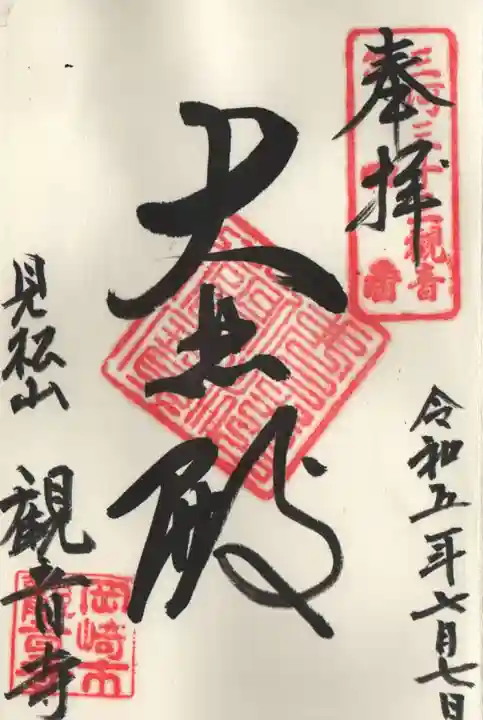 奉拝
三河三十三観音
令和五年七月七日
大悲殿
見松山
観音寺
岡崎市